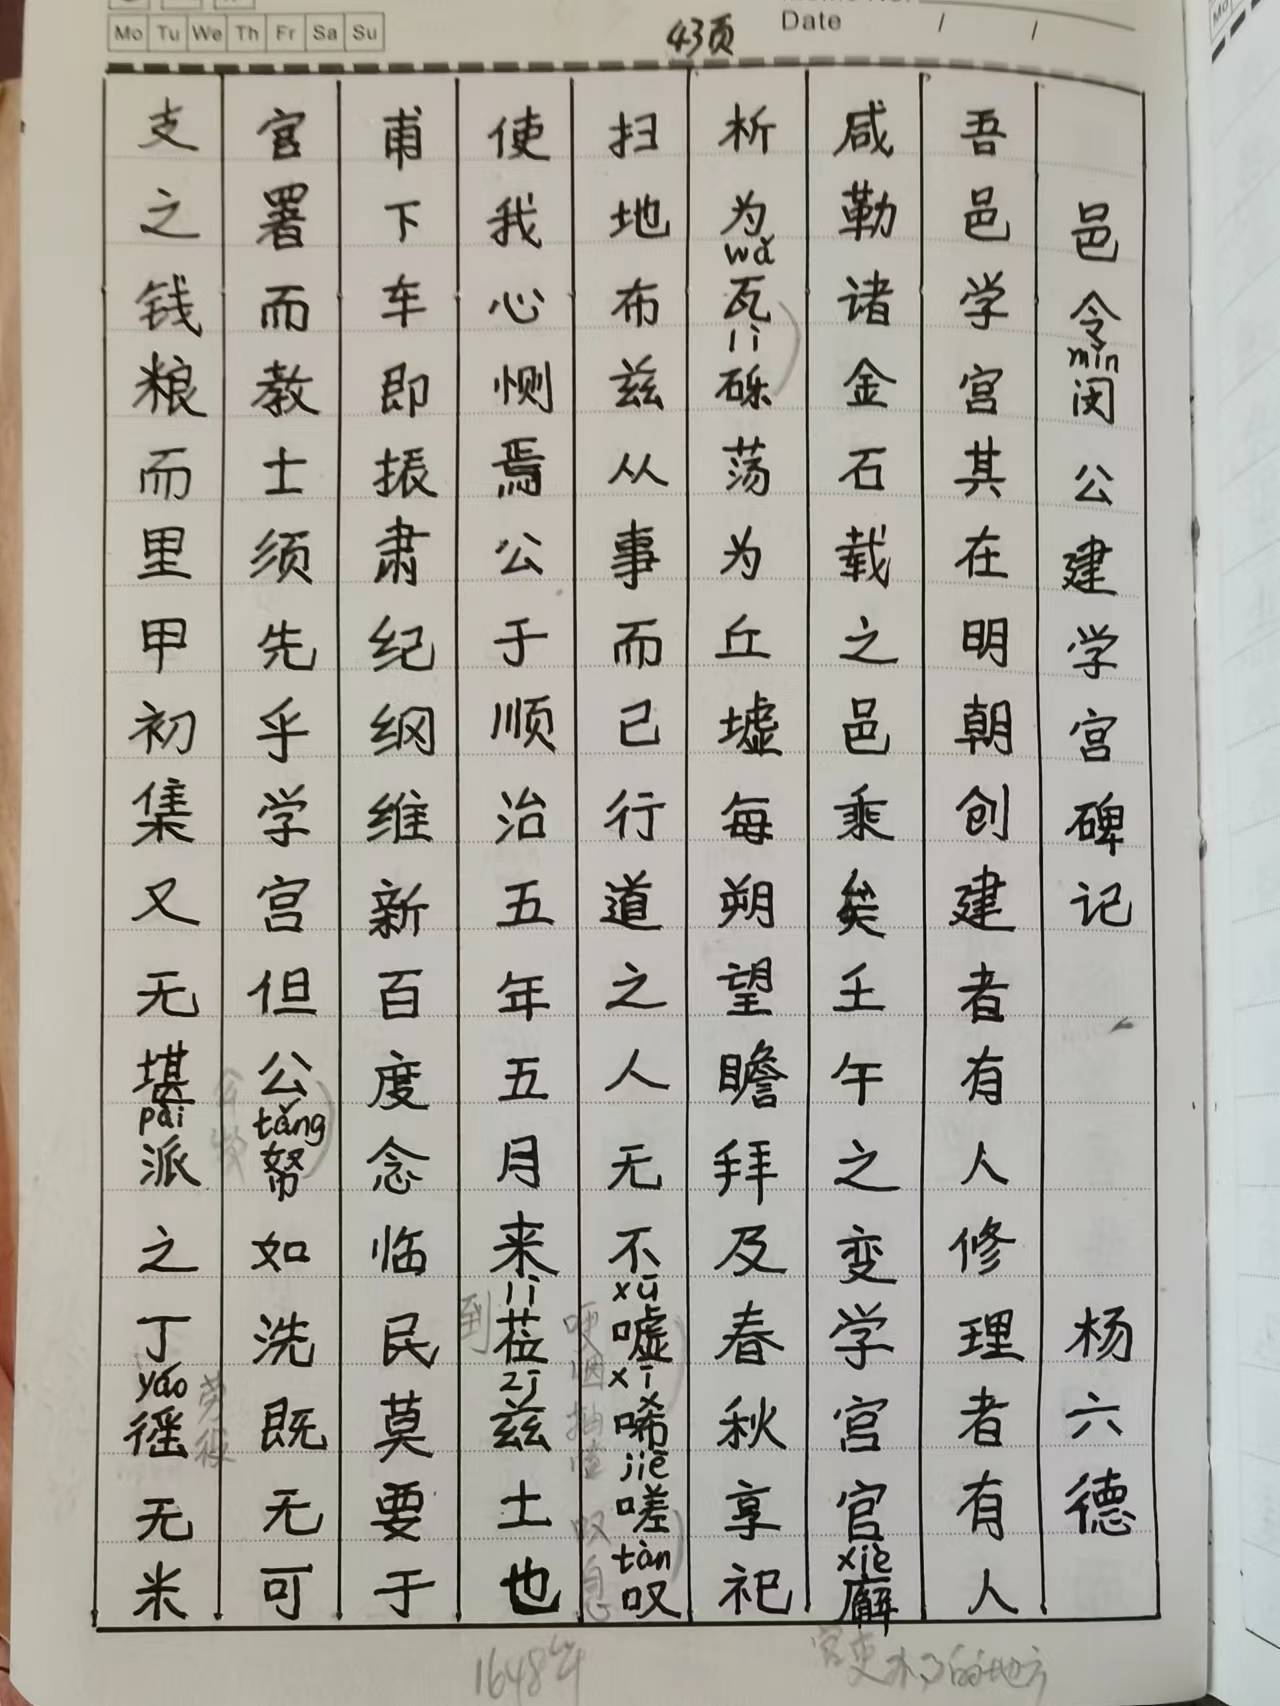 Mo Tu We Th Fr Sa Su
43页
Date / /
邑令闵公建学宫碑记 杨六德
mǐn
吾邑学宫其在明朝创建者有人修理者有人
咸勒诸金石载之邑乘矣壬午之变学宫官廨
xiè
析为瓦砾荡为丘墟每朔望瞻拜及春秋享祀
wǎ
lì
扫地布兹从事而已行道之人无不嘘唏嗟叹
xū
xī
jiē
tàn
叹息
使我心恻焉公于顺治五年五月来莅兹土也
lì
zī
到
甫下车即振肃纪纲维新百度念临民莫要于
官署而教士须先乎学宫但公帑如洗既无可
tǎng
支之钱粮而里甲初集又无堪派之丁徭无米
pài
yáo
劳役
1648年
官吏办事的地方